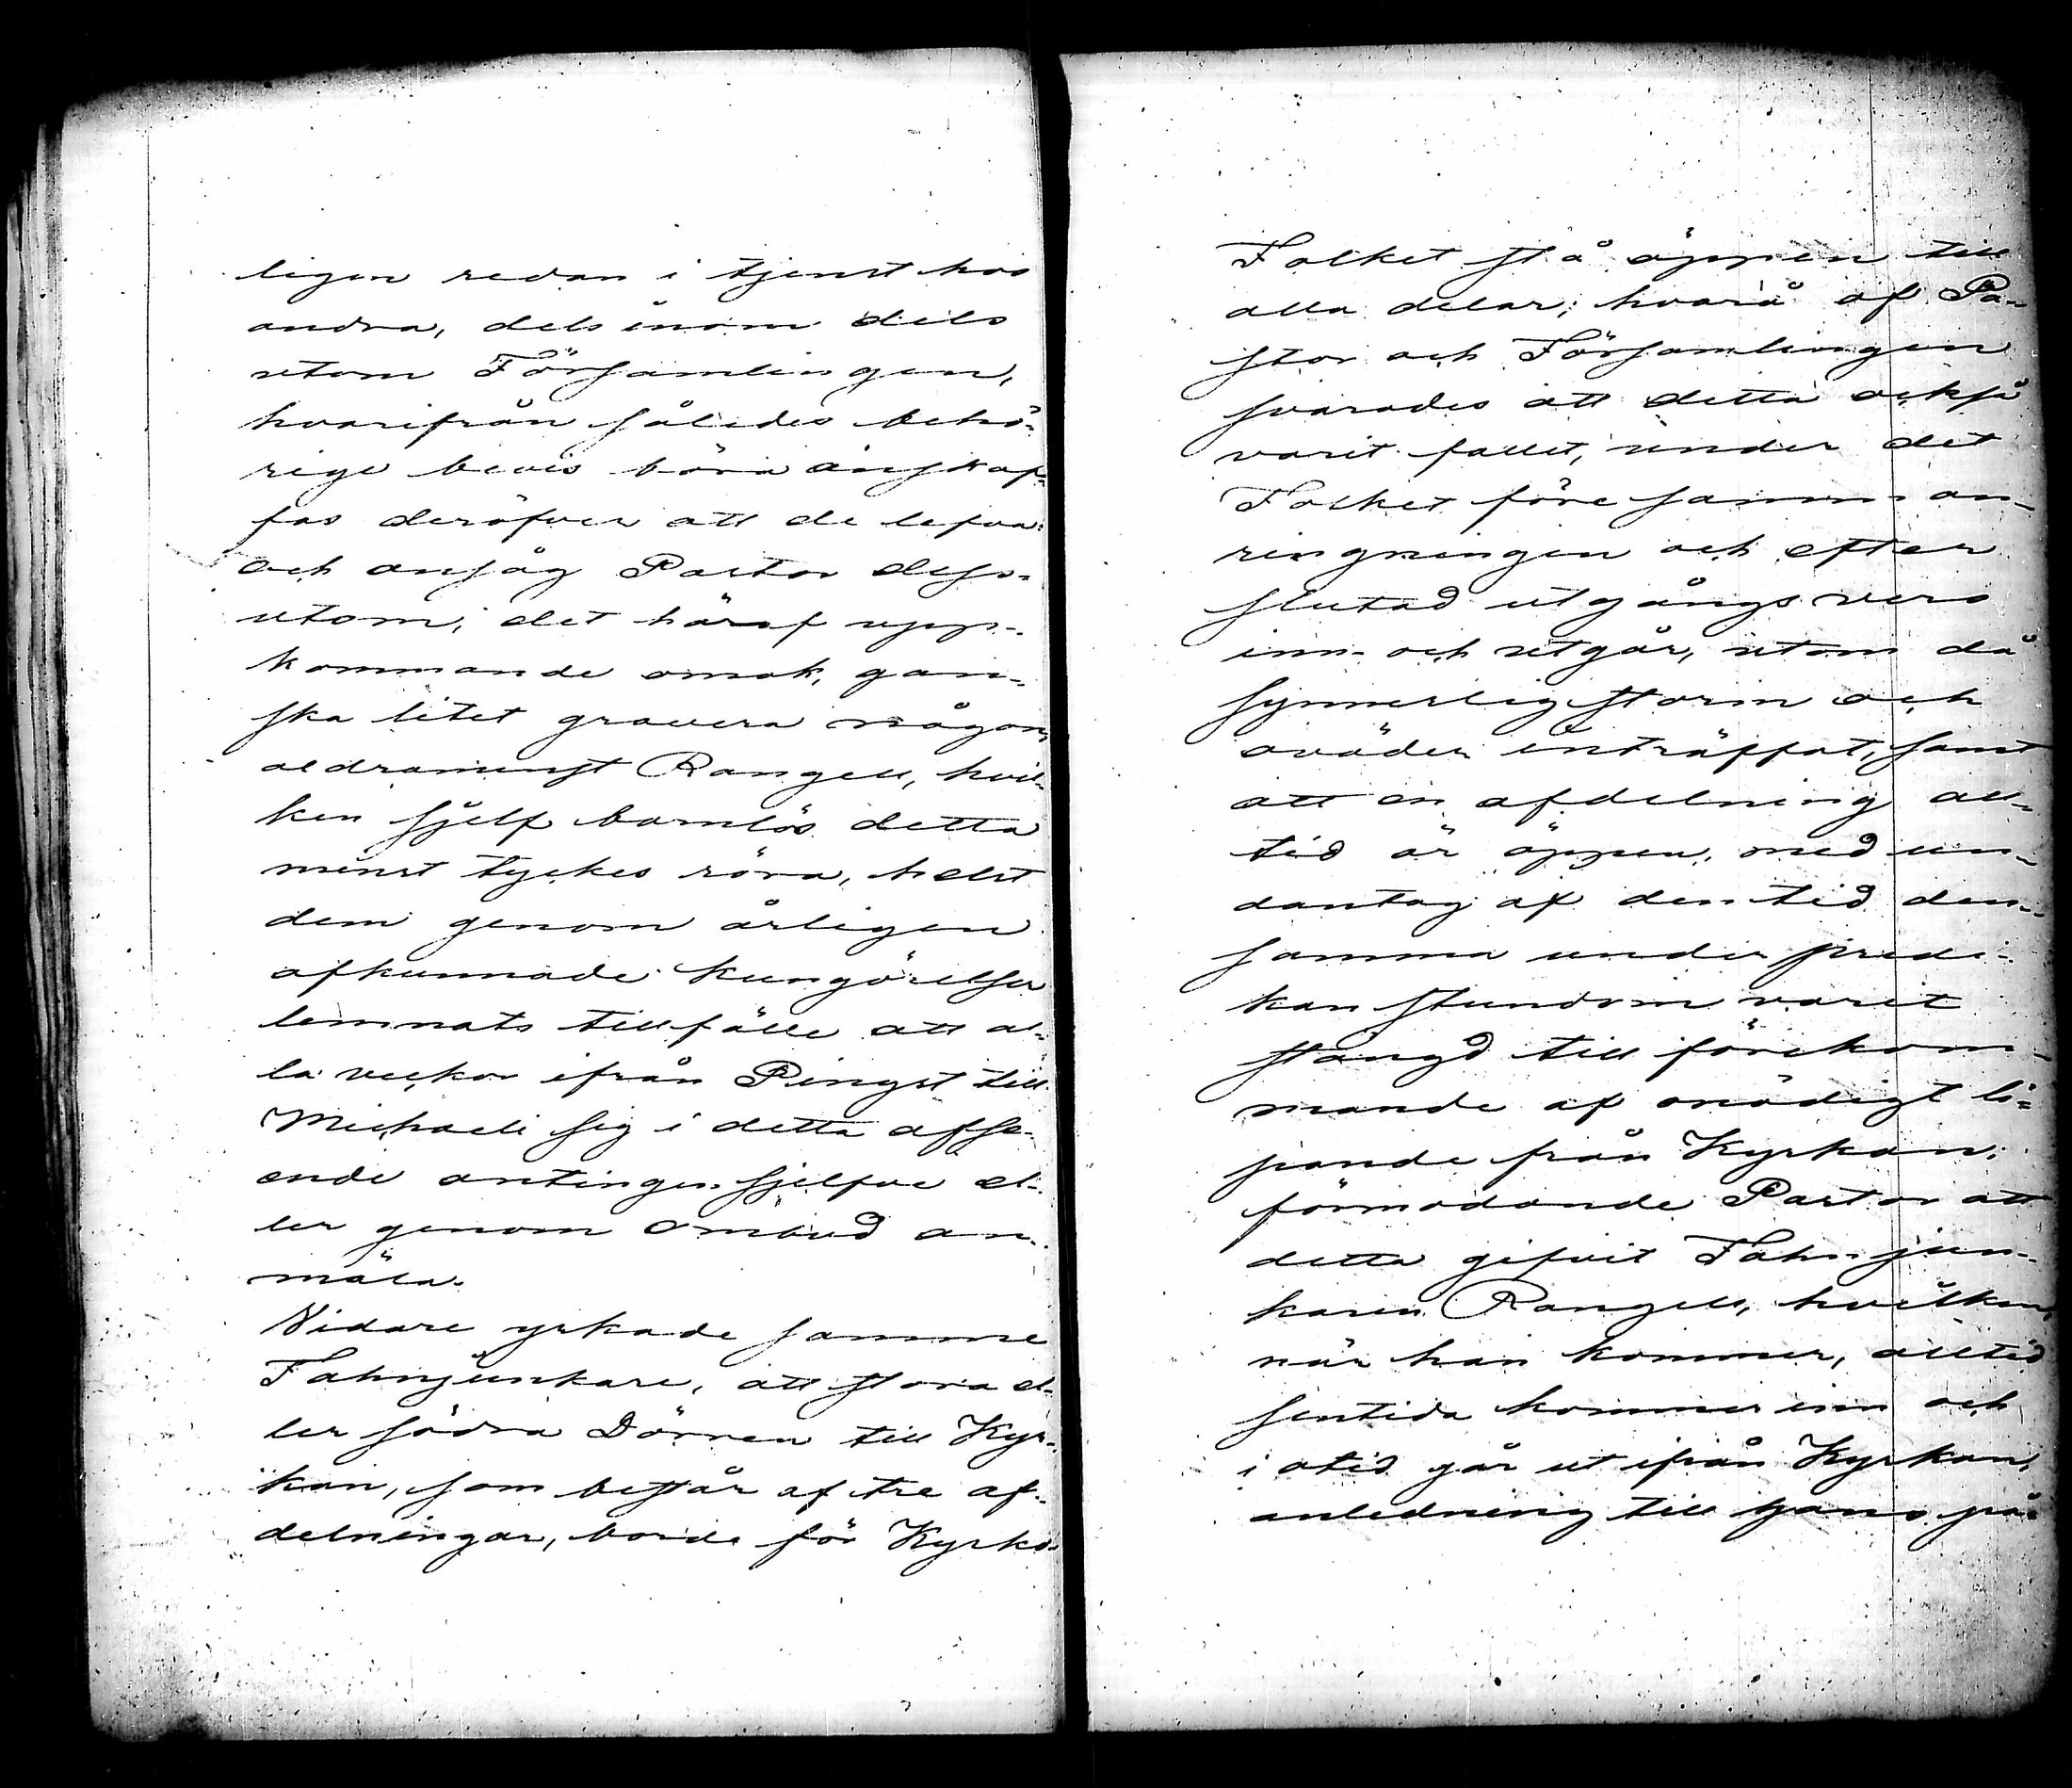 ligen redan i tjenst hos
andra, dels inom dels
utom Församlingen,
hvarifrån således behö-
rige bevis böra anskaf-
fas deröfver att de lefva:
och ansåg Pastor dess-
utom, det häraf upp-
kommande omak, gan-
ska litet gravera någon,
aldraminst Rangell, hvil-
ken sjelf barnlös detta
minst tyckes röra, helst
dem genom årligen
afkunnade kungörelser
lemnats tillfälle att al-
la veckor ifrån Pingst till
Michaeli sig i detta afse-
ende antingen sjelfve el-
ler genom ombud an-
mäla.
Vidare yrkade samme
Fahnjunkare, att stora el-
ler södra Dörren till Kyr-
kan, som består af tre af-
delningar, borde för Kyrko-
Folket stå öppen till
alla delar; hvarå af Pa-
stor och Församlingen
svarades att detta också
varit fallet, under det
Folket före samman-
ringningen och efter
slutad utgångs vers
inn- och utgår, utom då
synnerlig storm och
oväder inträffat, samt
att en afdelning all-
tid är öppen, med un-
dantag af den tid den-
samma under predi-
kan stundom varit
stängd till förekom-
mande af onödigt lö-
pande från Kyrkan;
förmodande Pastor att
detta gifvit Fahnjun-
karen Rangell, hvilken,
när han kommer, alltid
sentida kommer inn och
i otid går ut ifrån Kyrkan,
anledning till hans på-